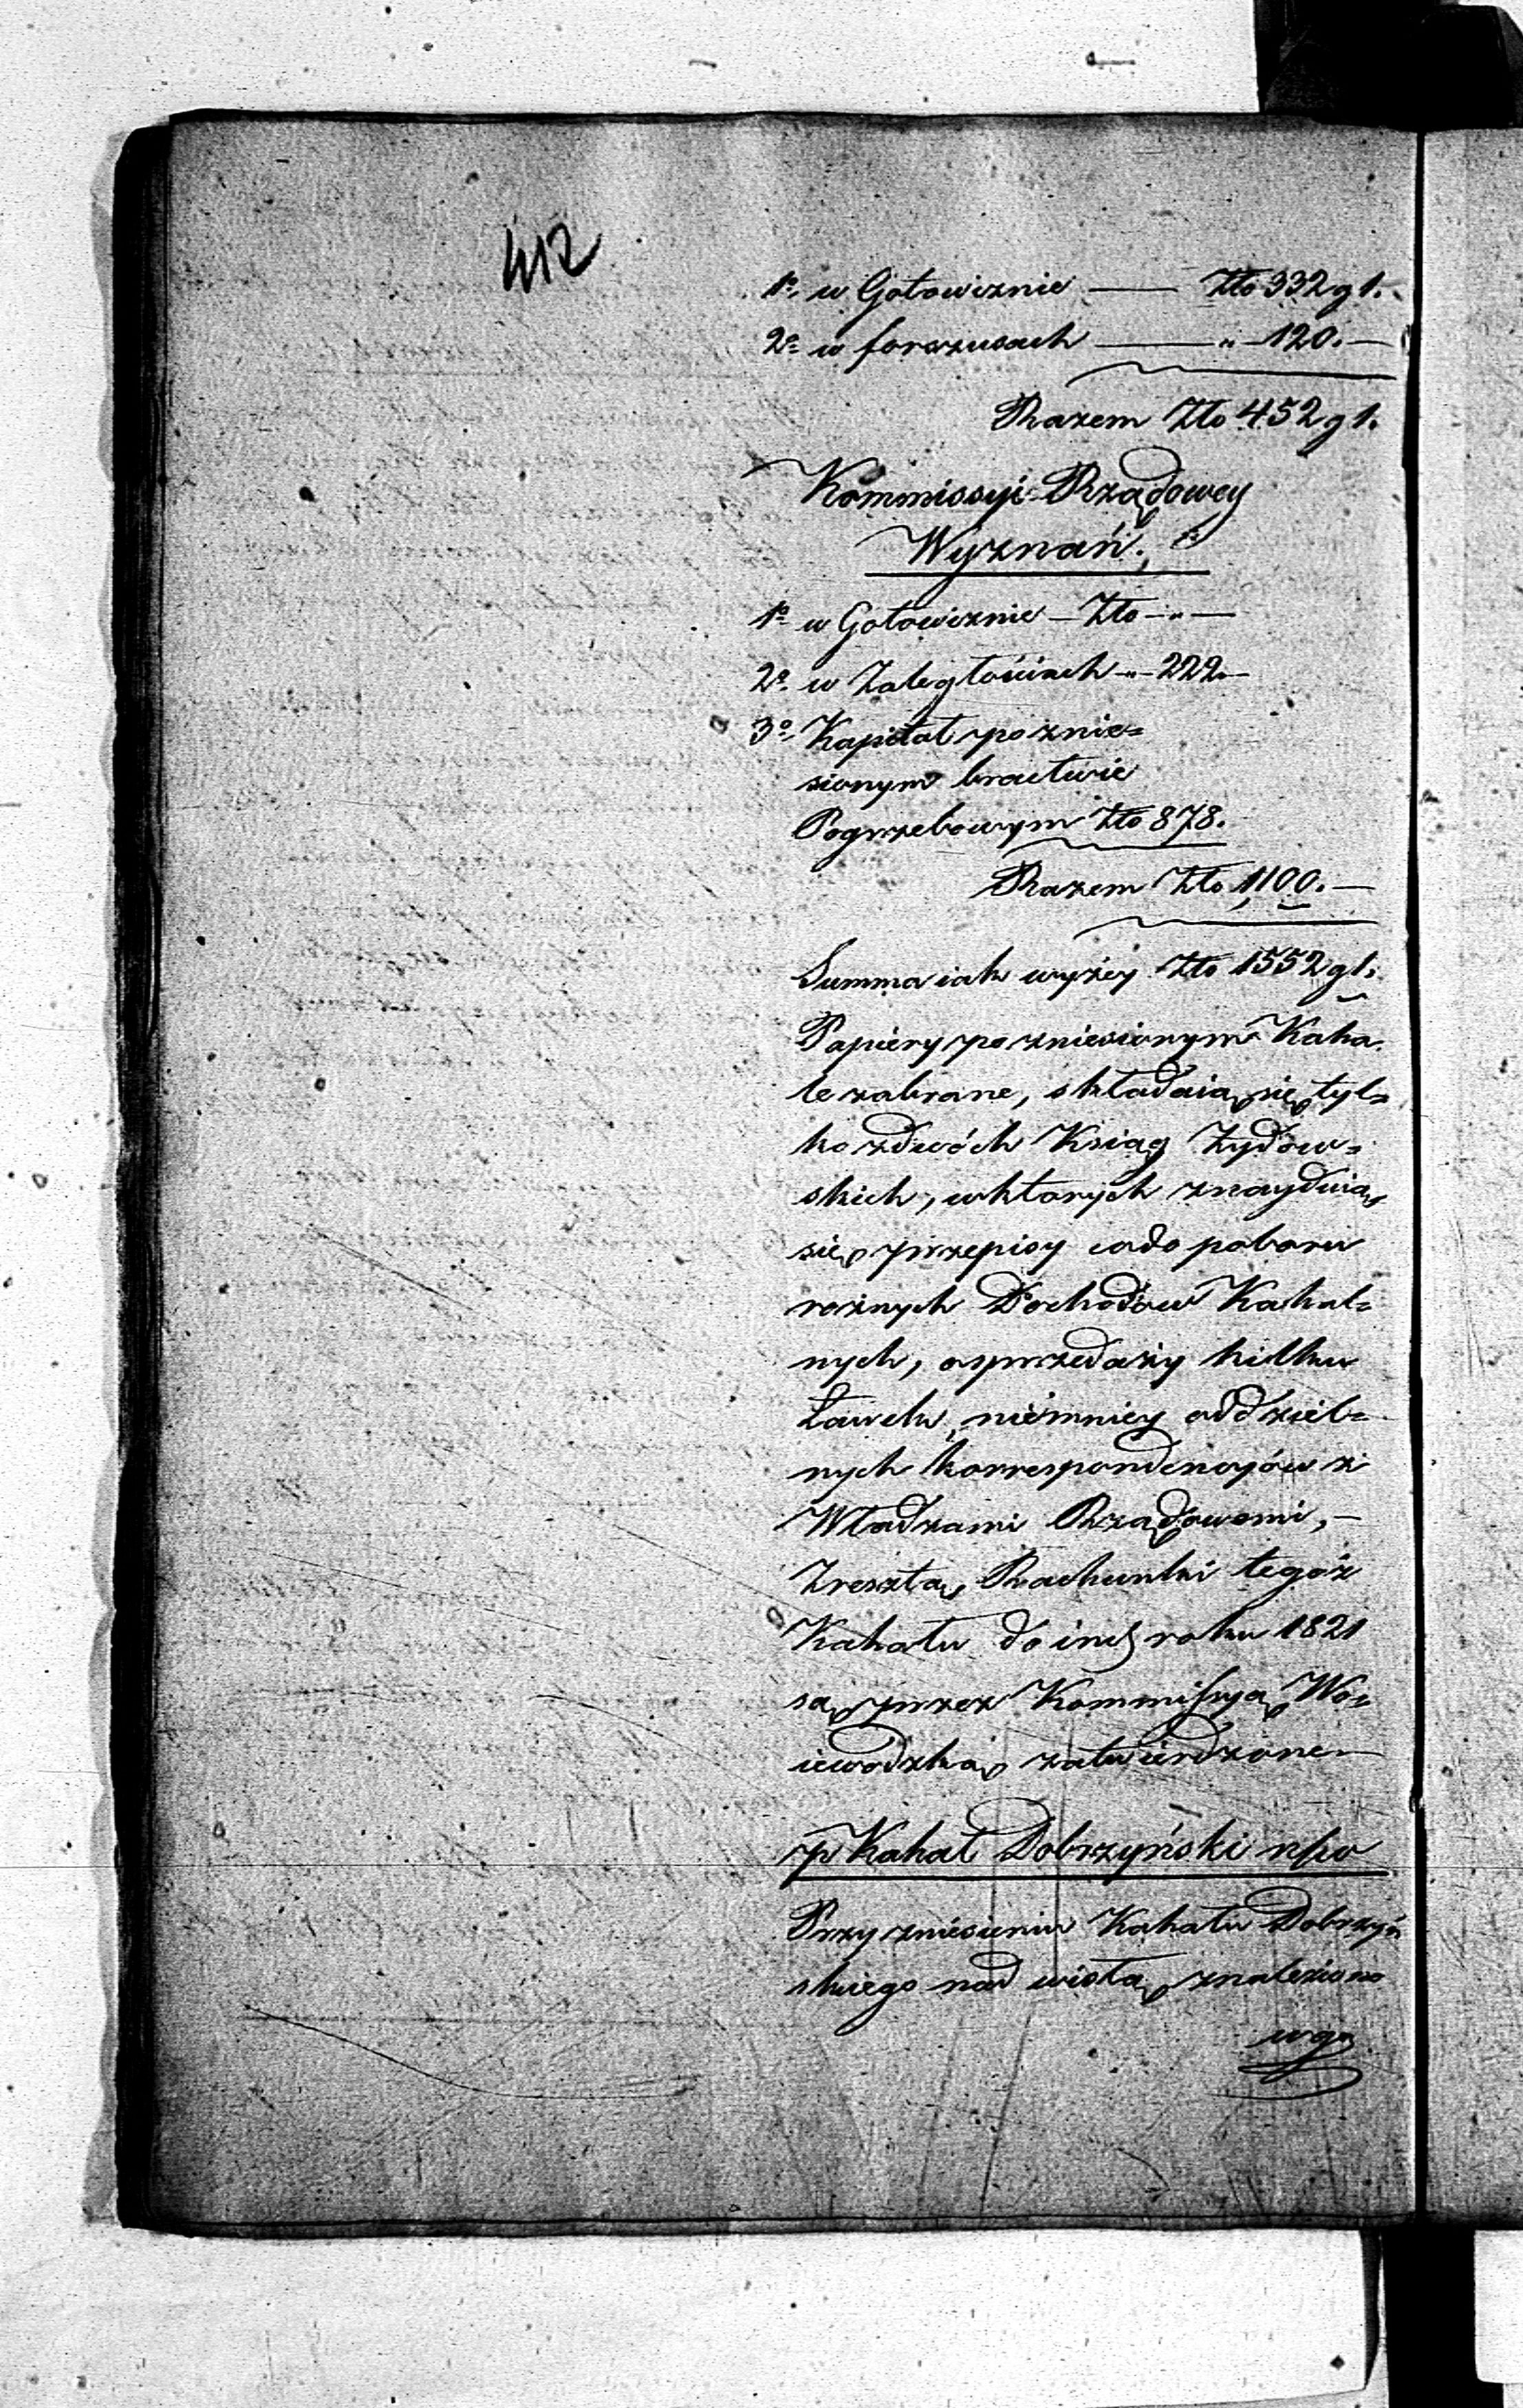 412
1o w Gotowiznie — Złto 332 g 1.
2o w forszusach — " 120. —
Razem Złto 452 g 1.
Kommissyi Rządowey
Wyznań.
1o w Gotowiznie — Złto — " —
2o w Zaległościach — " — 222 —
3o Kapitał po znie=
sionym bractwie
Pogrzebowym Złto 878.
Razem Złto 1100. —
Summa iak wyżey Złto 1552 g 1.
Papiery po zniesionym Kaha
le zabrane, składaią się tyl=
ko z dwóch Ksiąg Żydow=
skich, w ktorych znayduią
się przepisy co do poboru
rożnych Dochodów Kahal=
nych, o sprzedaży kilku
Ławek, niemniey oddziel=
nych korrespondencyów z
Władzami Rządowemi, —
Zresztą Rachunki tegoż
Kahału do roku 1821
są przez Kommissyą Wo=
iewodzką zatwierdzone —
p Kahał Dobrzyński n/w
Przy zniesieniu Kahału Dobrzyń
skiego nad wisłą znaleziono
w go